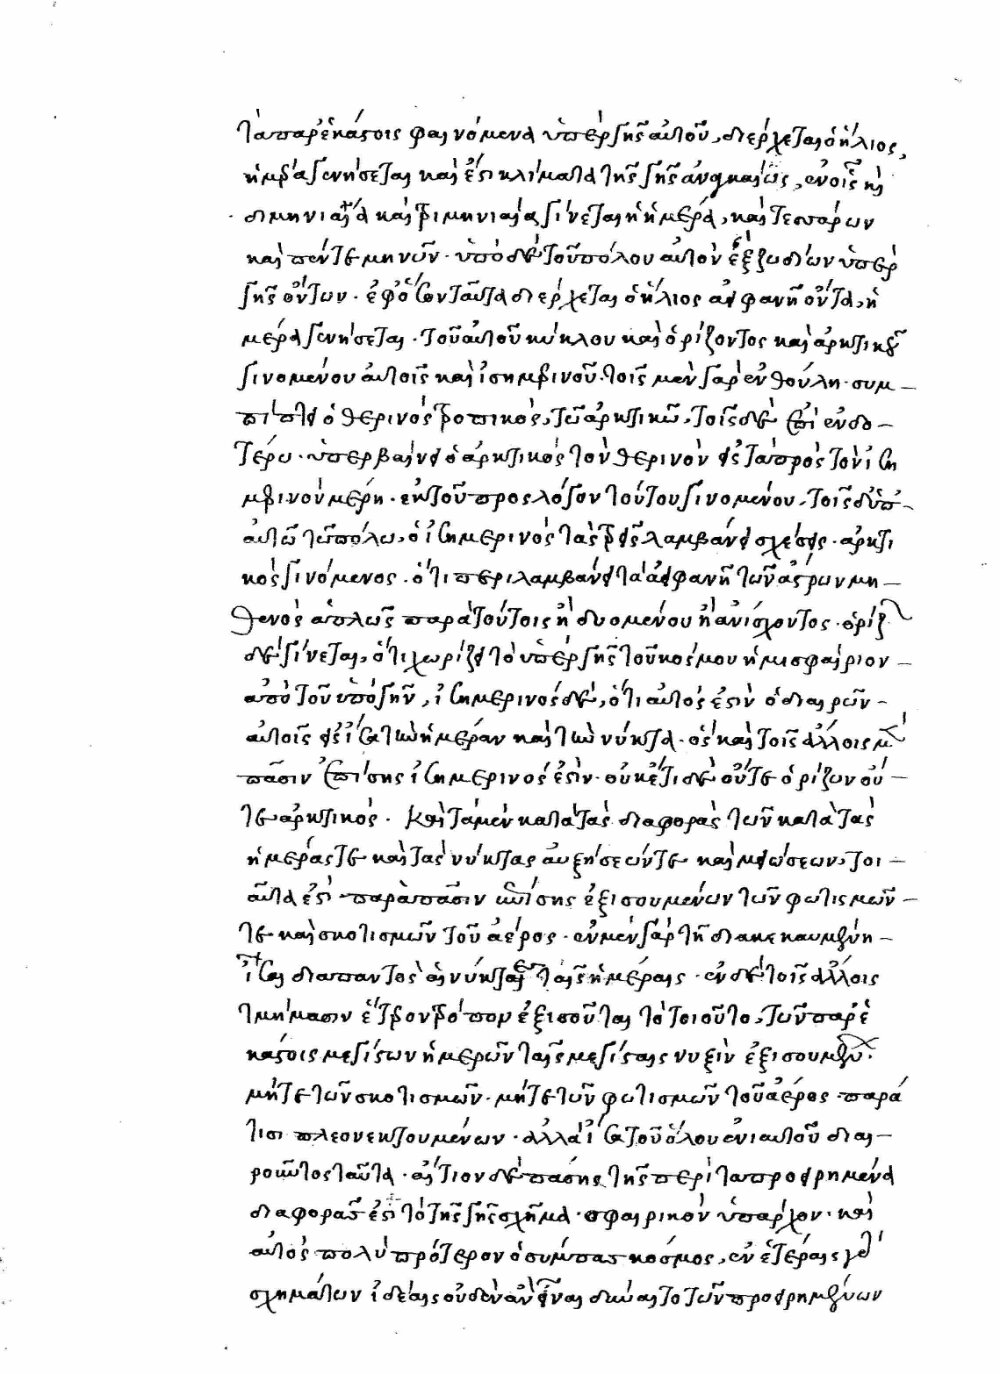 τὰ παρ' ἑκάστοις φαινόμενα ὑπὲρ γῆς αὐτοῦ, διέρχεται ὁ ἥλιος,
ἡμέρα γενήσεται καὶ ἔστι κλίματα τῆς γῆς ἀναγκαίως, ἐν οἷς καὶ
διμηνιαία καὶ τριμηνιαία γίνεται ἡ ἡμέρα, καὶ τεσσάρων
καὶ πέντε μηνῶν · ὑπὸ δὲ τοῦ πόλου αὐτὸν ἓξ ζωδίων ὑπὲρ
γῆς ὄντων · ἐφ' ὅσον ταῦτα διέρχεται ὁ ἥλιος ἀειφανῆ ὄντα, ἡ
μέρα γενήσεται · τοῦ αὐτοῦ κύκλου καὶ ὁρίζοντος καὶ ἀρκτικοῦ
γινομένου αὐτοῖς καὶ ἰσημερινοῦ · τοῖς μὲν γὰρ ἐν θούλη · συμ –
πίπτει ὁ θερινὸς τροπικὸς, τῶ ἀρκτικῶ, τοῖς δὲ ἐπὶ ἐνδο –
τέρω · ὑπερβαίνει ὁ ἀρκτικὸς τὸν θερινὸν εἰς τὰ πρὸς τὸν ἰση
μερινὸν μέρη · ἐκ τοῦ πρὸς λόγον τούτου γινομένου, τοῖς δ' ὑπ' –
αὐτῶ τῶ πόλω, ὁ ἰσημερινὸς τὰς τρεῖς λαμβάνει σχέσεις · ἀρκτι
κὸς γινόμενος · ὅτι περιλαμβάνει τὰ ἀειφανῆ τῶν ἄστρων μη –
θενὸς ἁπλῶς παρὰ τούτοις ἢ δυομένου ἢ ἀνίσχοντος · ὁρίζων
δὲ γίνεται, ὅτι χωρίζει τὸ ὑπὲρ γῆς τοῦ κόσμου ἡμισφαίριον –
ἀπὸ τοῦ ὑπὸ γῆν, ἰσημερινὸς δὲ, ὅτι αὐτός ἐστιν ὁ διαιρῶν –
αὐτοῖς εἰς ἴσα τὴν ἡμέραν καὶ τὴν νύκτα · ὃς καὶ τοῖς ἄλλοις μὲν
πᾶσιν ἐπίσης ἰσημερινός ἐστιν · οὐκέτι δὲ οὔτε ὁρίζων οὔ –
τε ἀρκτικός · Καὶ τὰ μὲν κατὰ τὰς διαφορὰς τῶν κατὰ τὰς
ἡμέρας τε καὶ τὰς νύκτας αὐξήσεών τε καὶ μειώσεων, τοι –
αῦτά ἐστι παρὰ πᾶσιν ἐπίσης ἐξισουμένων τῶν φωτισμῶν –
τε καὶ σκοτισμῶν τοῦ ἀέρος · ἐν μὲν γὰρ τῆ διακεκαυμένη –
ἴσαι διαπαντὸς αἱ νύκτες ταῖς ἡμέραις · ἐν δὲ τοῖς ἄλλοις
τμήμασιν ἕτερον τρόπον ἐξισοῦται τὸ τοιοῦτο, τῶν παρ' ἑ
κάστοις μεγίστων ἡμερῶν ταῖς μεγίσταις νυξὶν ἐξισουμένων ·
μήτε τῶν σκοτισμῶν · μήτε τῶν φωτισμῶν τοῦ ἀέρος · παρά
τισι πλεονεκτουμένων · ἀλλὰ ἴσα τοῦ ὅλου ἐνιαυτοῦ διαι –
ροῦντος ταῦτα · αἴτιον δὲ πάσης τῆς περὶ τὰ προειρημένα
διαφορᾶς ἐστι τὸ τῆς γῆς σχῆμα · σφαιρικὸν ὑπάρχον · καὶ
αὐτὸς πολὺ πρότερον ὁ σύμπας κόσμος, ἐν ἑτέραις γὰρ
σχημάτων ἰδέαις οὐδὲν ἂν εἶναι δύναιτο τῶν προειρημένων